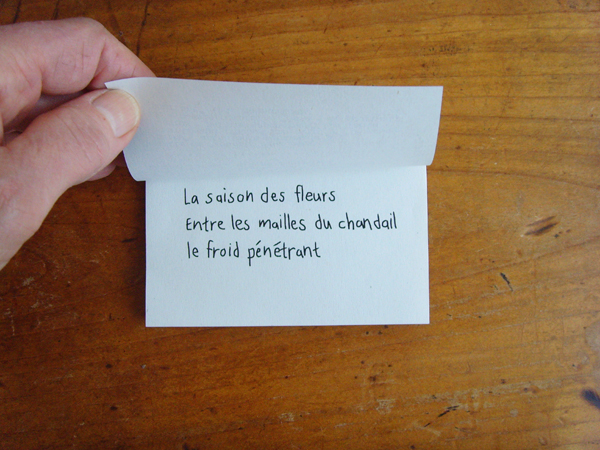 La saison des fleurs
Entre les mailles du chandail
le froid pénétrant